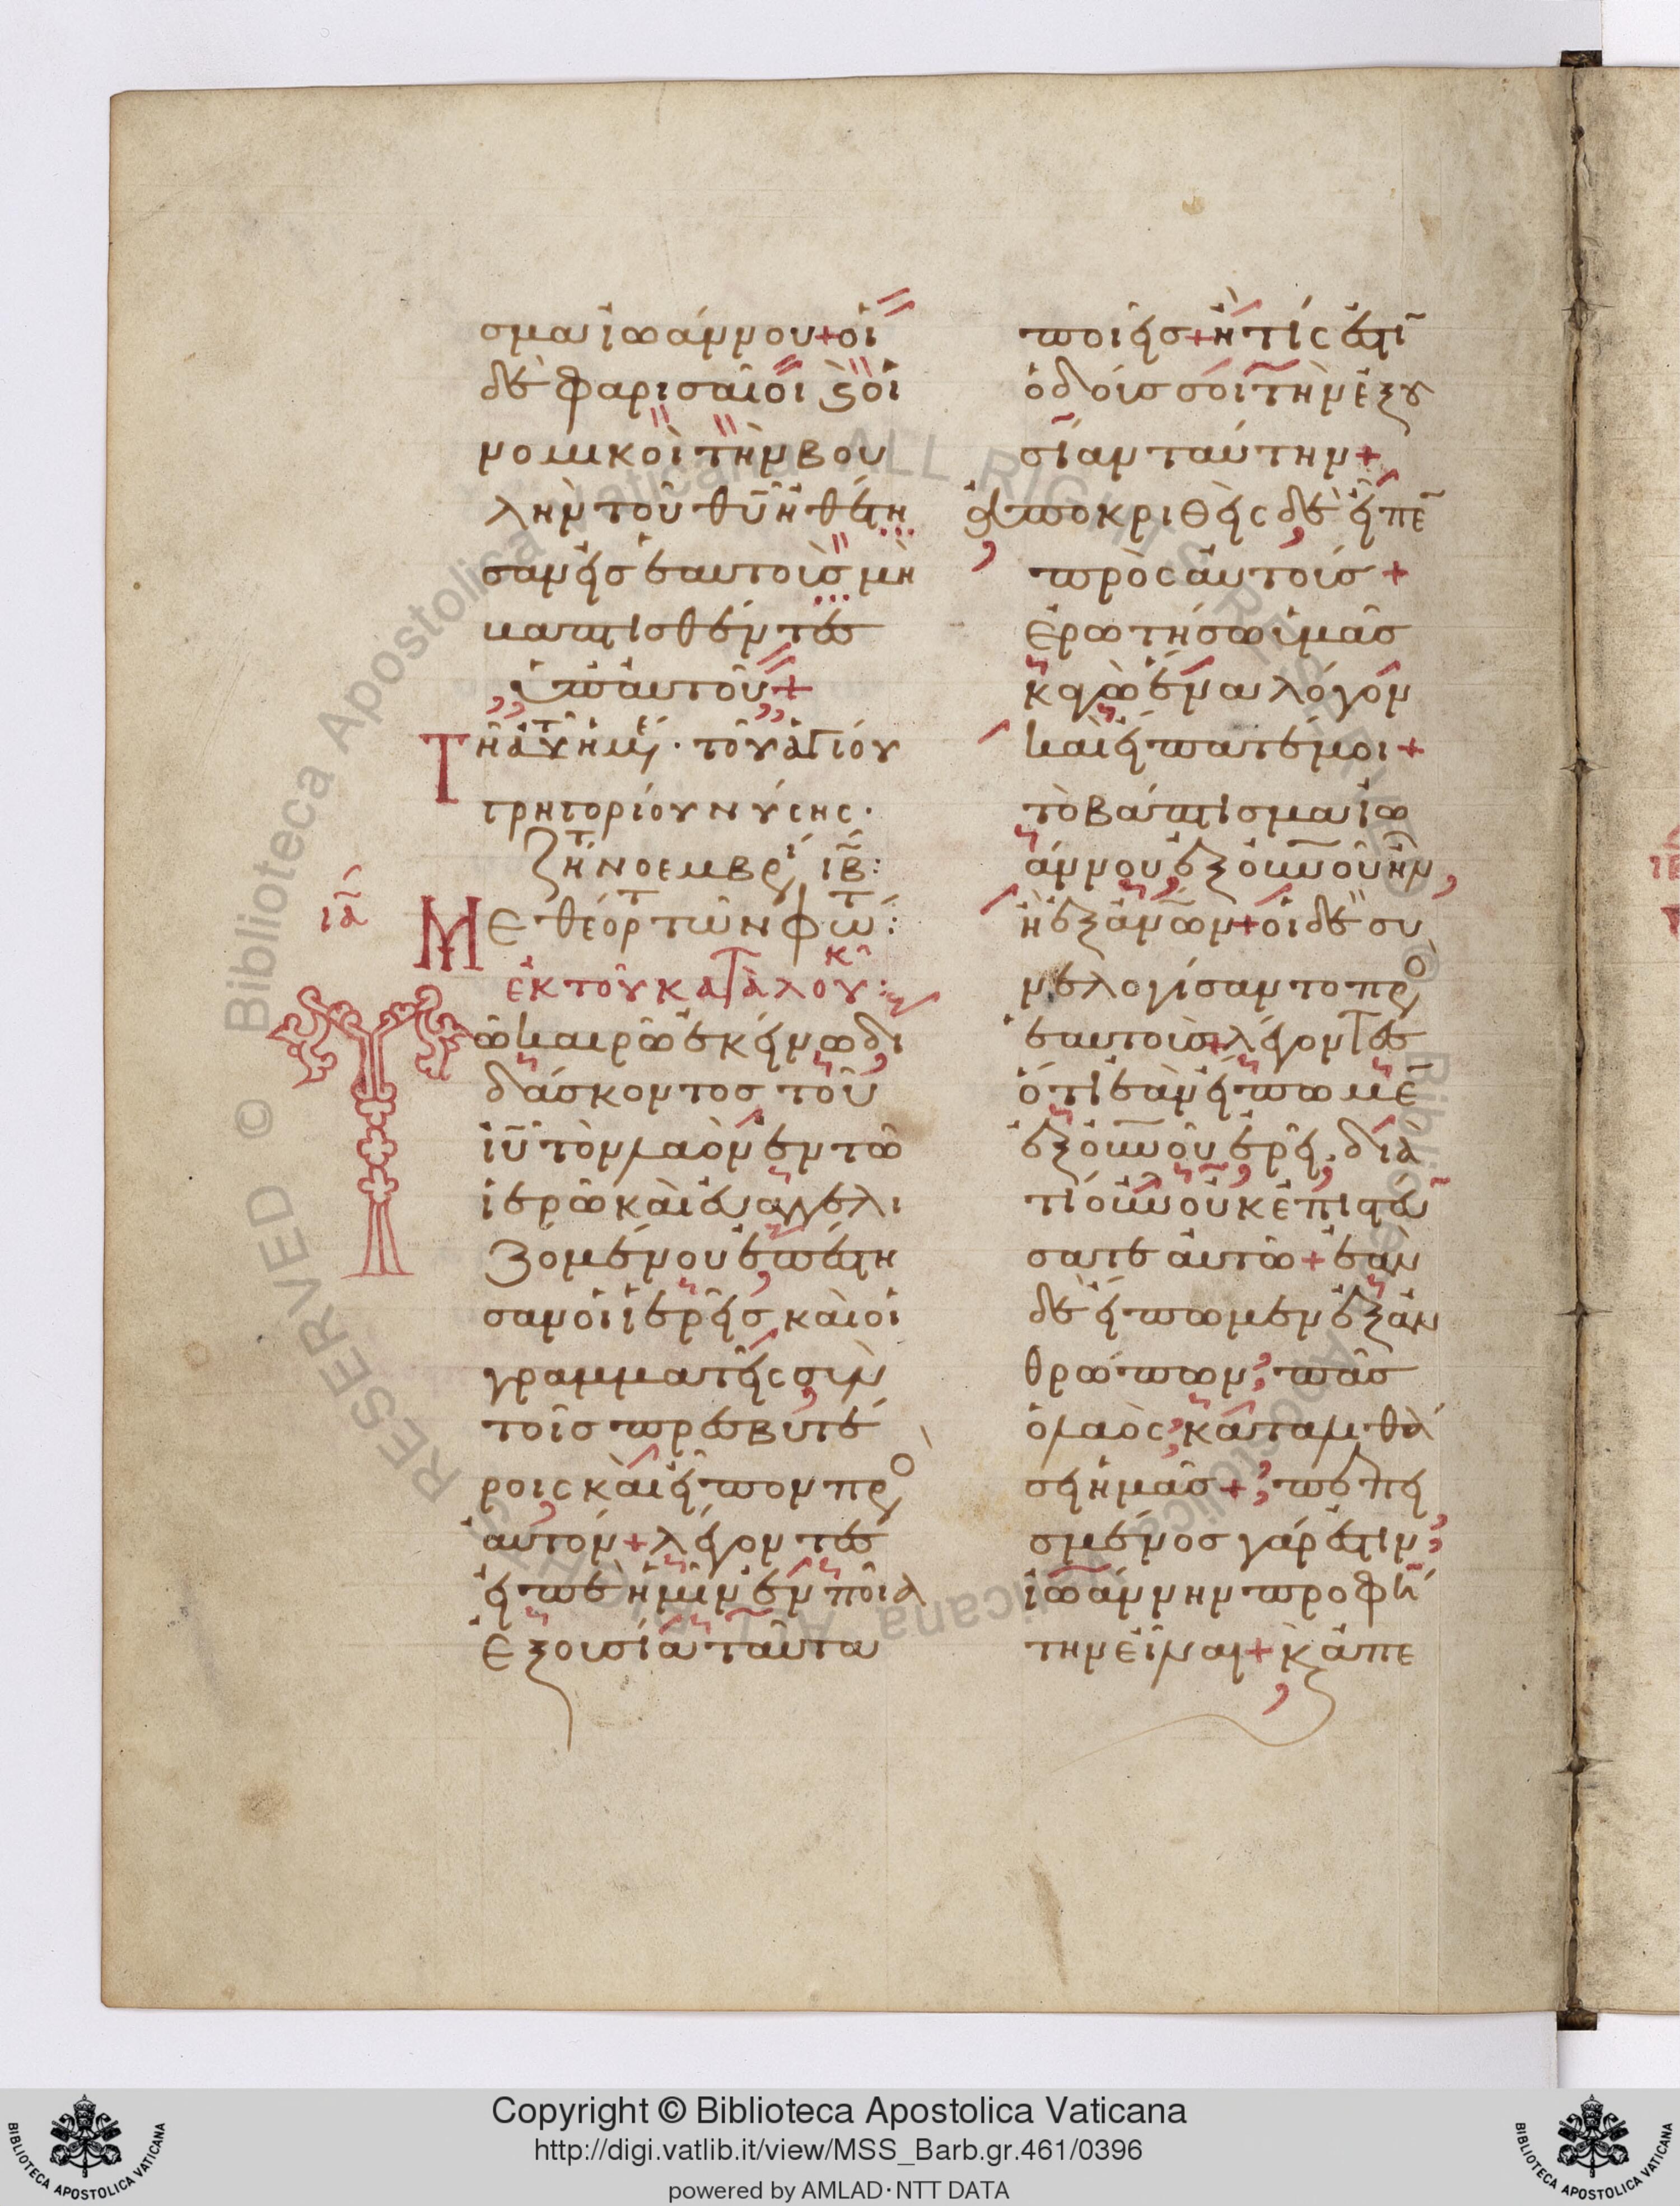 σμα ἰωάννου + οἱ
δὲ φαρισαῖοι ϗ οἱ
νομικοὶ τὴν βου
λὴν τοῦ θῦ ἠθέτη
σαν εἰς ἑαυτοὺς μὴ
βαπτισθέντες
ὑπ' αὐτοῦ +
Τῆ ἀυτ ἡμέ · τοῦ ἁγίου
γρηγορίου νύσης ·
ζήτ νοεμβρί ιβ :
ια
Μεθέορτ τῶν φώτ :
ἐκ τοῦ κατὰ λουκ :
Τῶ καιρῶ ἐκείνω δι
δάσκοντος τοῦ
ἰῦ τὸν λαὸν ἐν τῶ
ἱερῶ καὶ εὐαγγελι
ζομένου ἐπέστη
σαν οἱ ἱερεῖς καὶ οἱ
γραμματεῖς σὺν
τοῖς πρεσβυτέ
ροις καὶ εἶπον πρὸ
αὐτόν + λέγοντες
εἰπὲ ἡμῖν ἐν ποία
ἐξουσία ταῦτα
ποιεῖς + ἢ τίς ἐστῖ
ὁ δούς σοι τὴν ἐξου
σίαν ταύτην +
ἀποκριθεὶς δὲ εἶπε
πρὸς αὐτούς +
ἐρωτήσω ὑμᾶς
κἀγὼ ἕνα λόγον
καὶ εἴπατέ μοι +
τὸ βάπτισμα ἰω
άννου ἐξ οὐνοῦ ἦν,
ἢ ἐξ ἀνῶν + οἱ δὲ συ
νελογίσαντο πρὸ
ἑαυτοὺς + λέγοντες
ὅτι ἐὰν εἴπωμε
ἐξ οὐνοῦ ἐρεῖ · διὰ
τί οὖν οὐκ ἐπιστεύ
σατε αὐτῶ + ἐὰν
δὲ εἴπωμεν ἐξ ἀν
θρώπων, πᾶς
ὁ λαὸς καταλιθά
σει ἡμᾶς + πεπει
σμένος γάρ ἐστιν
ἰωάννην προφή
την εἶναι + ϗ ἀπε
Copyright © Biblioteca Apostolica Vaticana
http://digi.vatlib.it/view/MSS_Barb.gr.461/0396
powered by AMLAD·NTT DATA
BIBLIOTECA APOSTOLICA VATICANA
BIBLIOTECA APOSTOLICA VATICANA